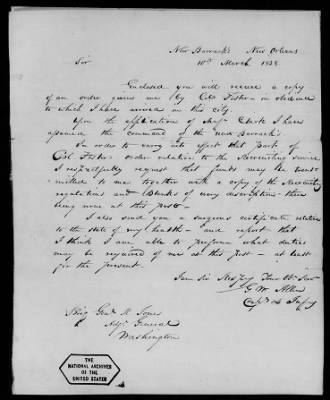 New Barracks New Orleans
10th March 1838
Sir
Enclosed you will receive a copy
of an order given me by Col Foster in obedience
to which I have arrived in this city.
Upon the application of Maj Clark I have
assumed the command of the new Barracks.
In order to carry into effect that part of
Col Foster's order relative to the Recruiting service
I respectfully request that funds may be trans
mitted to me together with a copy of the Recruiting
regulations and Blanks of every description there
being none at this post
I also send you a surgeons certificate relative
to the state of my health - and report that
I think I am able to perform what duties
may be required of me at this post - at least
for the present.
I am Sir
G W Allen
Capt 4 Infy
Brig Genl R Jones
Adjt General
Washington
THE
NATIONAL ARCHIVES
OF THE
UNITED STATES